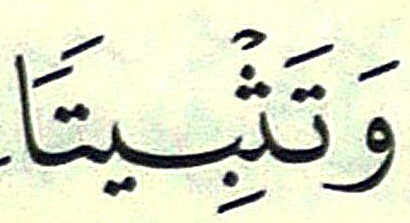 وَتَثْبِيتًا